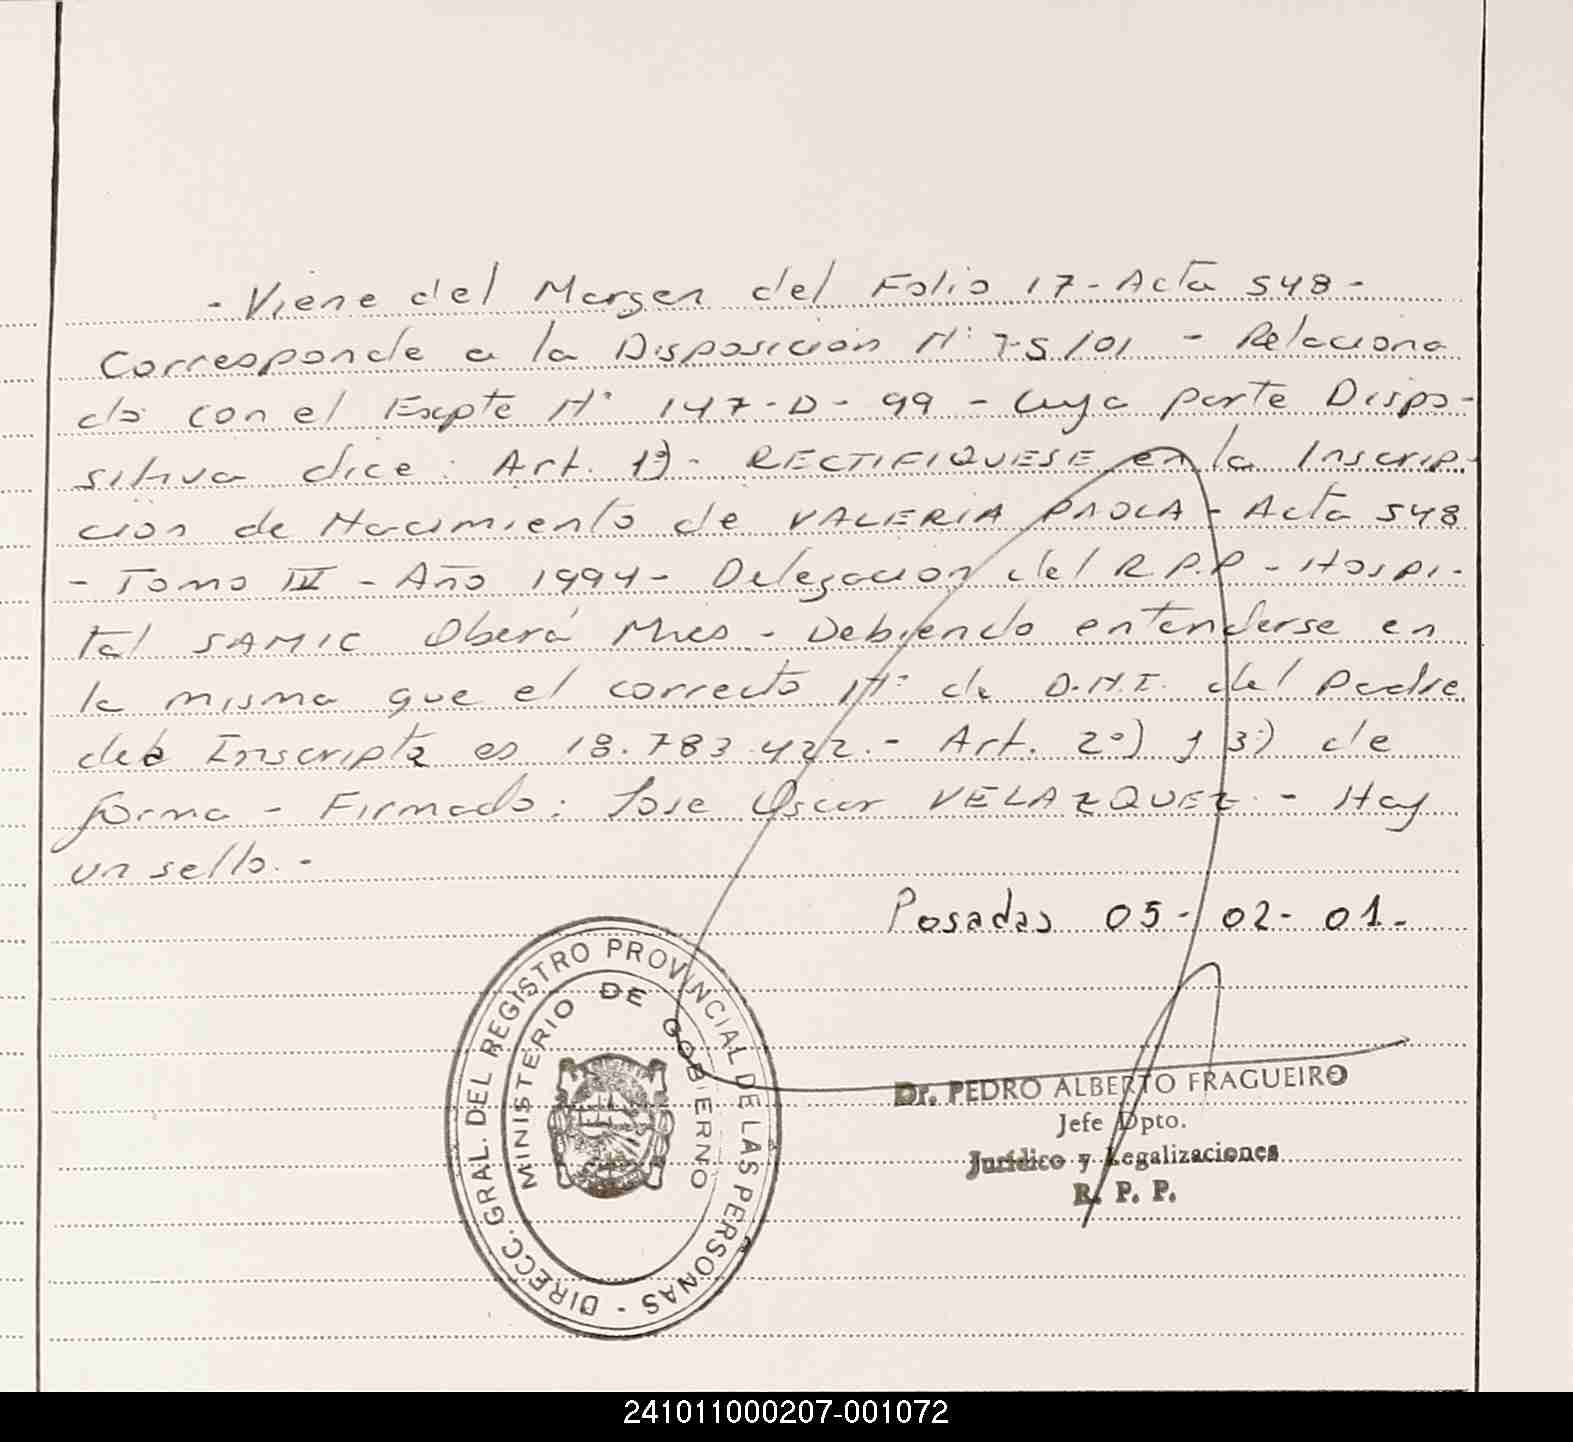 - Viene del Margen del Folio 17 - Acta 548 -
Corresponde a la Disposición N° 75/01 - Relaciona
do con el Expte N° 147-D-99 - Cuya parte Dispo-
sitiva dice: Art. 1°) - RECTIFIQUESE en la Inscrip-
ción de Nacimiento de VALERIA PAOLA - Acta 548
- Tomo III - Año 1994 - Delegación del R.P.P - Hospi-
tal SAMIC Oberá Mnes - Debiendo entenderse en
la misma que el correcto N° de D.N.I. del Padre
de la Inscripta es 18.783.422.- Art. 2°) y 3°) de
forma - Firmado: Jose Oscar VELAZQUEZ. - Hay
un sello. -
Posadas 05-02-01.
DIRECC. GRAL. DEL REGISTRO PROVINCIAL DE LAS PERSONAS -
MINISTERIO DE GOBIERNO
Dr. PEDRO ALBERTO FRAGUEIRO
Jefe Dpto.
Jurídico y Legalizaciones
R. P. P.
241011000207-001072